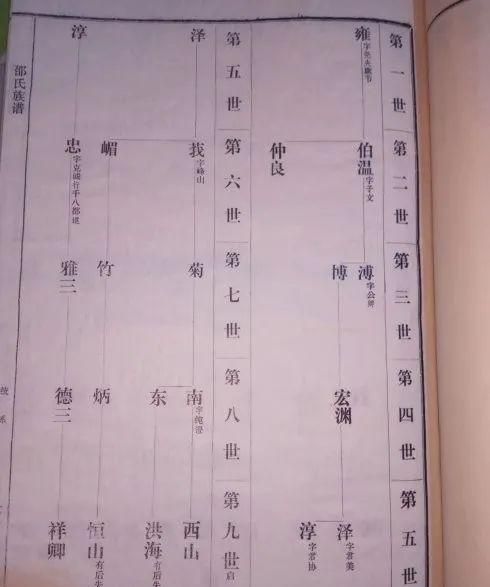 第一世
雍
第二世
伯温 字子文
仲良
第三世
溥 字公济
博
第四世
宏渊
第五世
泽 字君美
淳 字君协
第五世
泽
淳
第六世
莪 字峰山
嵋
忠
第七世
菊
竹
雅三
第八世
南
东
炳
德三
第九世
西山
洪海
恒山
祥卿
邵氏族谱
统系